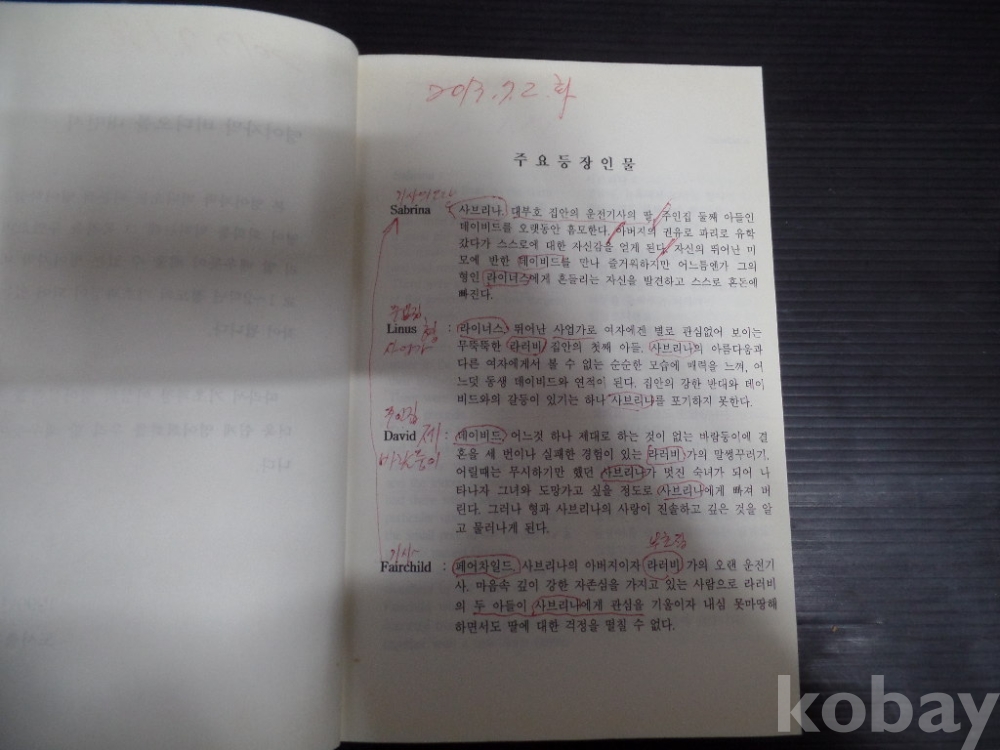 2013.7.2.화
주요등장인물
Sabrina : 사브리나. 대부호 집안의 운전기사의 딸. 주인집 둘째 아들인
데이비드를 오랫동안 흠모한다. 아버지의 권유로 파리로 유학
갔다가 스스로에 대한 자신감을 얻게 된다. 자신의 뛰어난 미
모에 반한 데이비드를 만나 즐거워하지만 어느틈엔가 그의
형인 라이너스에게 흔들리는 자신을 발견하고 스스로 혼돈에
빠진다.
주인집
Linus 형 : 라이너스. 뛰어난 사업가로 여자에겐 별로 관심없어 보이는
사업가 무뚝뚝한 라러비 집안의 첫째 아들. 사브리나의 아름다움과
다른 여자에게서 볼 수 없는 순순한 모습에 매력을 느껴, 어
느덧 동생 데이비드와 연적이 된다. 집안의 강한 반대와 데이
비드와의 갈등이 있기는 하나 사브리나를 포기하지 못한다.
주인집
David 제 : 데이비드. 어느것 하나 제대로 하는 것이 없는 바람둥이에 결
바람둥이 혼을 세 번이나 실패한 경험이 있는 라러비 가의 말썽꾸러기.
어릴때는 무시하기만 했던 사브리나가 멋진 숙녀가 되어 나
타나자 그녀와 도망가고 싶을 정도로 사브리나에게 빠져 버
린다. 그러나 형과 사브리나의 사랑이 진솔하고 깊은 것을 알
고 물러나게 된다.
기사
Fairchild : 페어차일드. 사브리나의 아버지이자 라러비 가의 오랜 운전기
사. 마음속 깊이 강한 자존심을 가지고 있는 사람으로 라러비
의 두 아들이 사브리나에게 관심을 기울이자 내심 못마땅해
하면서도 딸에 대한 걱정을 떨칠 수 없다.
kobay